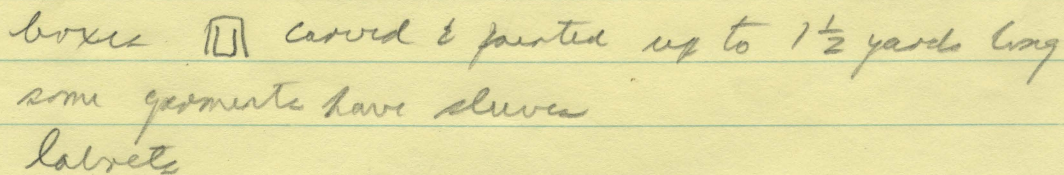 boxes carved & painted up to 1½ yards long
some garments have sleeves
labrets